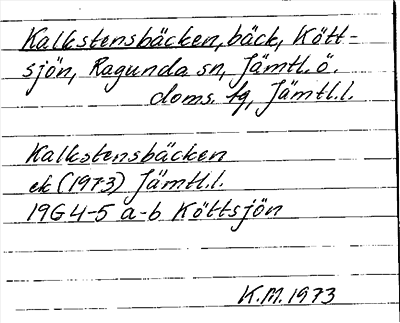 Kalkstensbäcken, bäck, Kött-
sjön, Ragunda sn, Jämtl.ö.
doms. tg, Jämtl.l.
Kalkstensbäcken
ek (1973) Jämtl.l.
19G 4-5 a-b Köttsjön
K.M. 1973